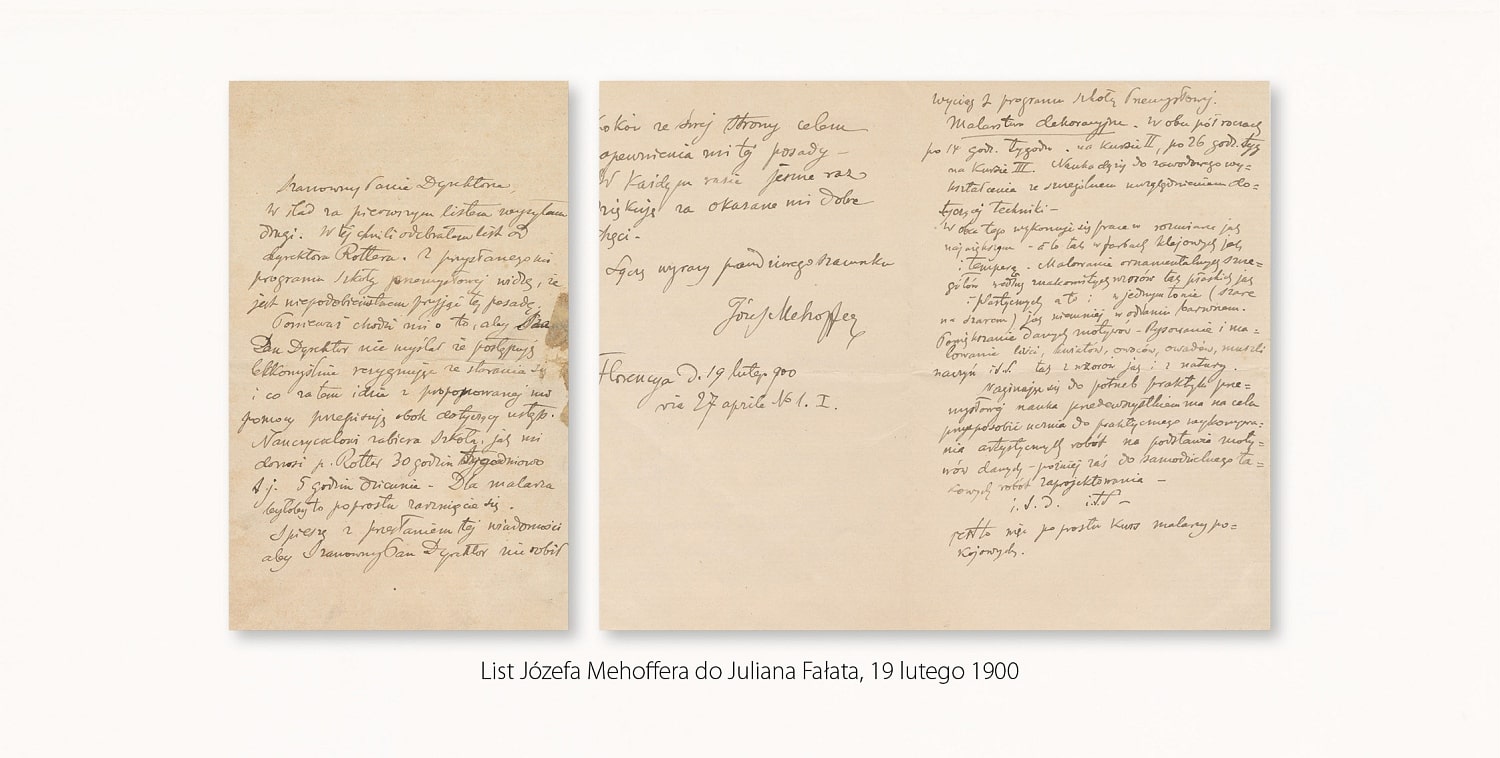 Szanowny Panie Dyrektorze,
W ślad za pierwszym listem wysyłam
drugi. W tej chwili odebrałem list od
dyrektora Rottera. Z przysłanego mi
programu szkoły przemysłowej widzę, że
jest niepodobieństwem przyjąć tę posadę.
Ponieważ chodzi mi o to, aby
Pan Dyrektor nie myślał że postępuję
lekkomyślnie rezygnując ze starania się
i co zatem idzie z proponowanej mi
pomocy przepisuję obok dotyczący ustęp.
Nauczycielowi zabiera szkoła, jak mi
donosi p. Rotter 30 godzin tygodniowo
t.j. 5 godzin dziennie - Dla malarza
byłoby to poprostu zarznięcie się.
Spieszę z przesłaniem tej wiadomości
aby Szanowny Pan Dyrektor nie robił
kroków ze swej strony celem
zapewnienia mi tej posady -
W każdym razie jeszcze raz
dziękuję za okazane mi dobre
chęci -
Łączę wyrazy prawdziwego szacunku
Józef Mehoffer
Florencya d. 19 lutego 900
via 27 aprile No 1. I.
Wyciąg z programu szkoły Przemysłowej.
Malarstwo dekoracyjne. W obu półroczach
po 14 godz. tygodn. na kursie II, po 26 godz. tyg
na kursie III. Nauka dąży do zawodowego wy=
kształcenia ze szczególnem uwzględnieniem do=
tyczącej techniki -
W obec tego wykonuje się prace w rozmiarze jak
największym - a to tak w farbach klejowych jak
i temperą. Malowanie ornamentalnych szcze=
gółów według znakomitych wzorów tak płaskich jak
i plastycznych a to i w jednym tonie (szare
na szarem) jak niemniej w oddaniu barwnem.
Powiększanie danych motywów - Rysowanie i ma=
lowanie liści, kwiatów, owoców, owadów, muszli
naczyń itd. tak z wzorów jak i z natury.
Naginając się do potrzeb praktyki prze=
mysłowej nauka przedewszystkiem ma na celu
przysposobić ucznia do praktycznego wykonywa=
nia artystycznych robót na podstawie moty=
wów danych - później zaś do samodzielnego ta=
kowych robót zaprojektowania -
i.t.d. itd -
Jest to więc po prostu kurs malarzy po=
kojowych.
List Józefa Mehoffera do Juliana Fałata, 19 lutego 1900